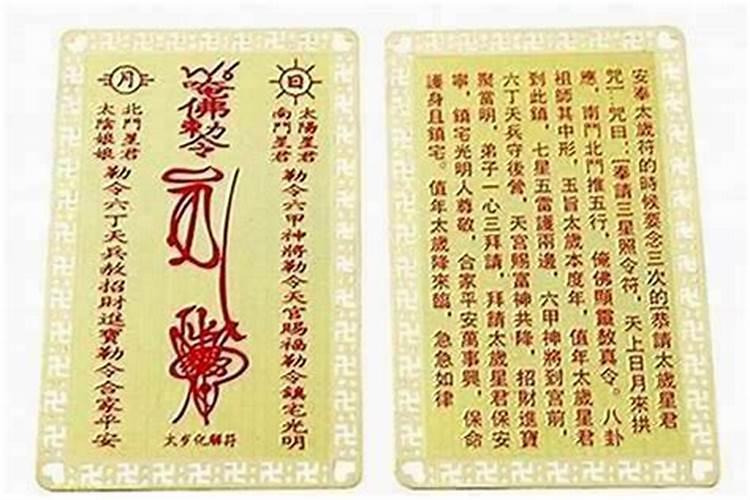 日
太陽星君
南鬥星君
勒令六甲神將勒令天官賜福勒令鎮宅光明
佛勅令
太歲化解符
月
北鬥星君
太陰娘娘
勒令六丁天兵敘招財進寶勒令合家平安
安奉太歲符的時候要念三次的[恭請太歲星君
咒]…咒曰:[奉請三星照令符,天上日月來拱
應,南鬥北鬥推五行,俺佛顯靈敘真令。八卦
祖師其中形,玉旨太歲本度年,值年太歲星君
到此鎮,七星五雷護兩邊,六甲神將到宮前,
六丁天兵守後營,天宮賜富神共降,招財進寶
聚當明,弟子一心三拜請,拜請太歲星君保安
寧,鎮宅光明人尊敬,合家平安萬事興,保命
護身且鎮宅。值年太歲降來臨,急急如律